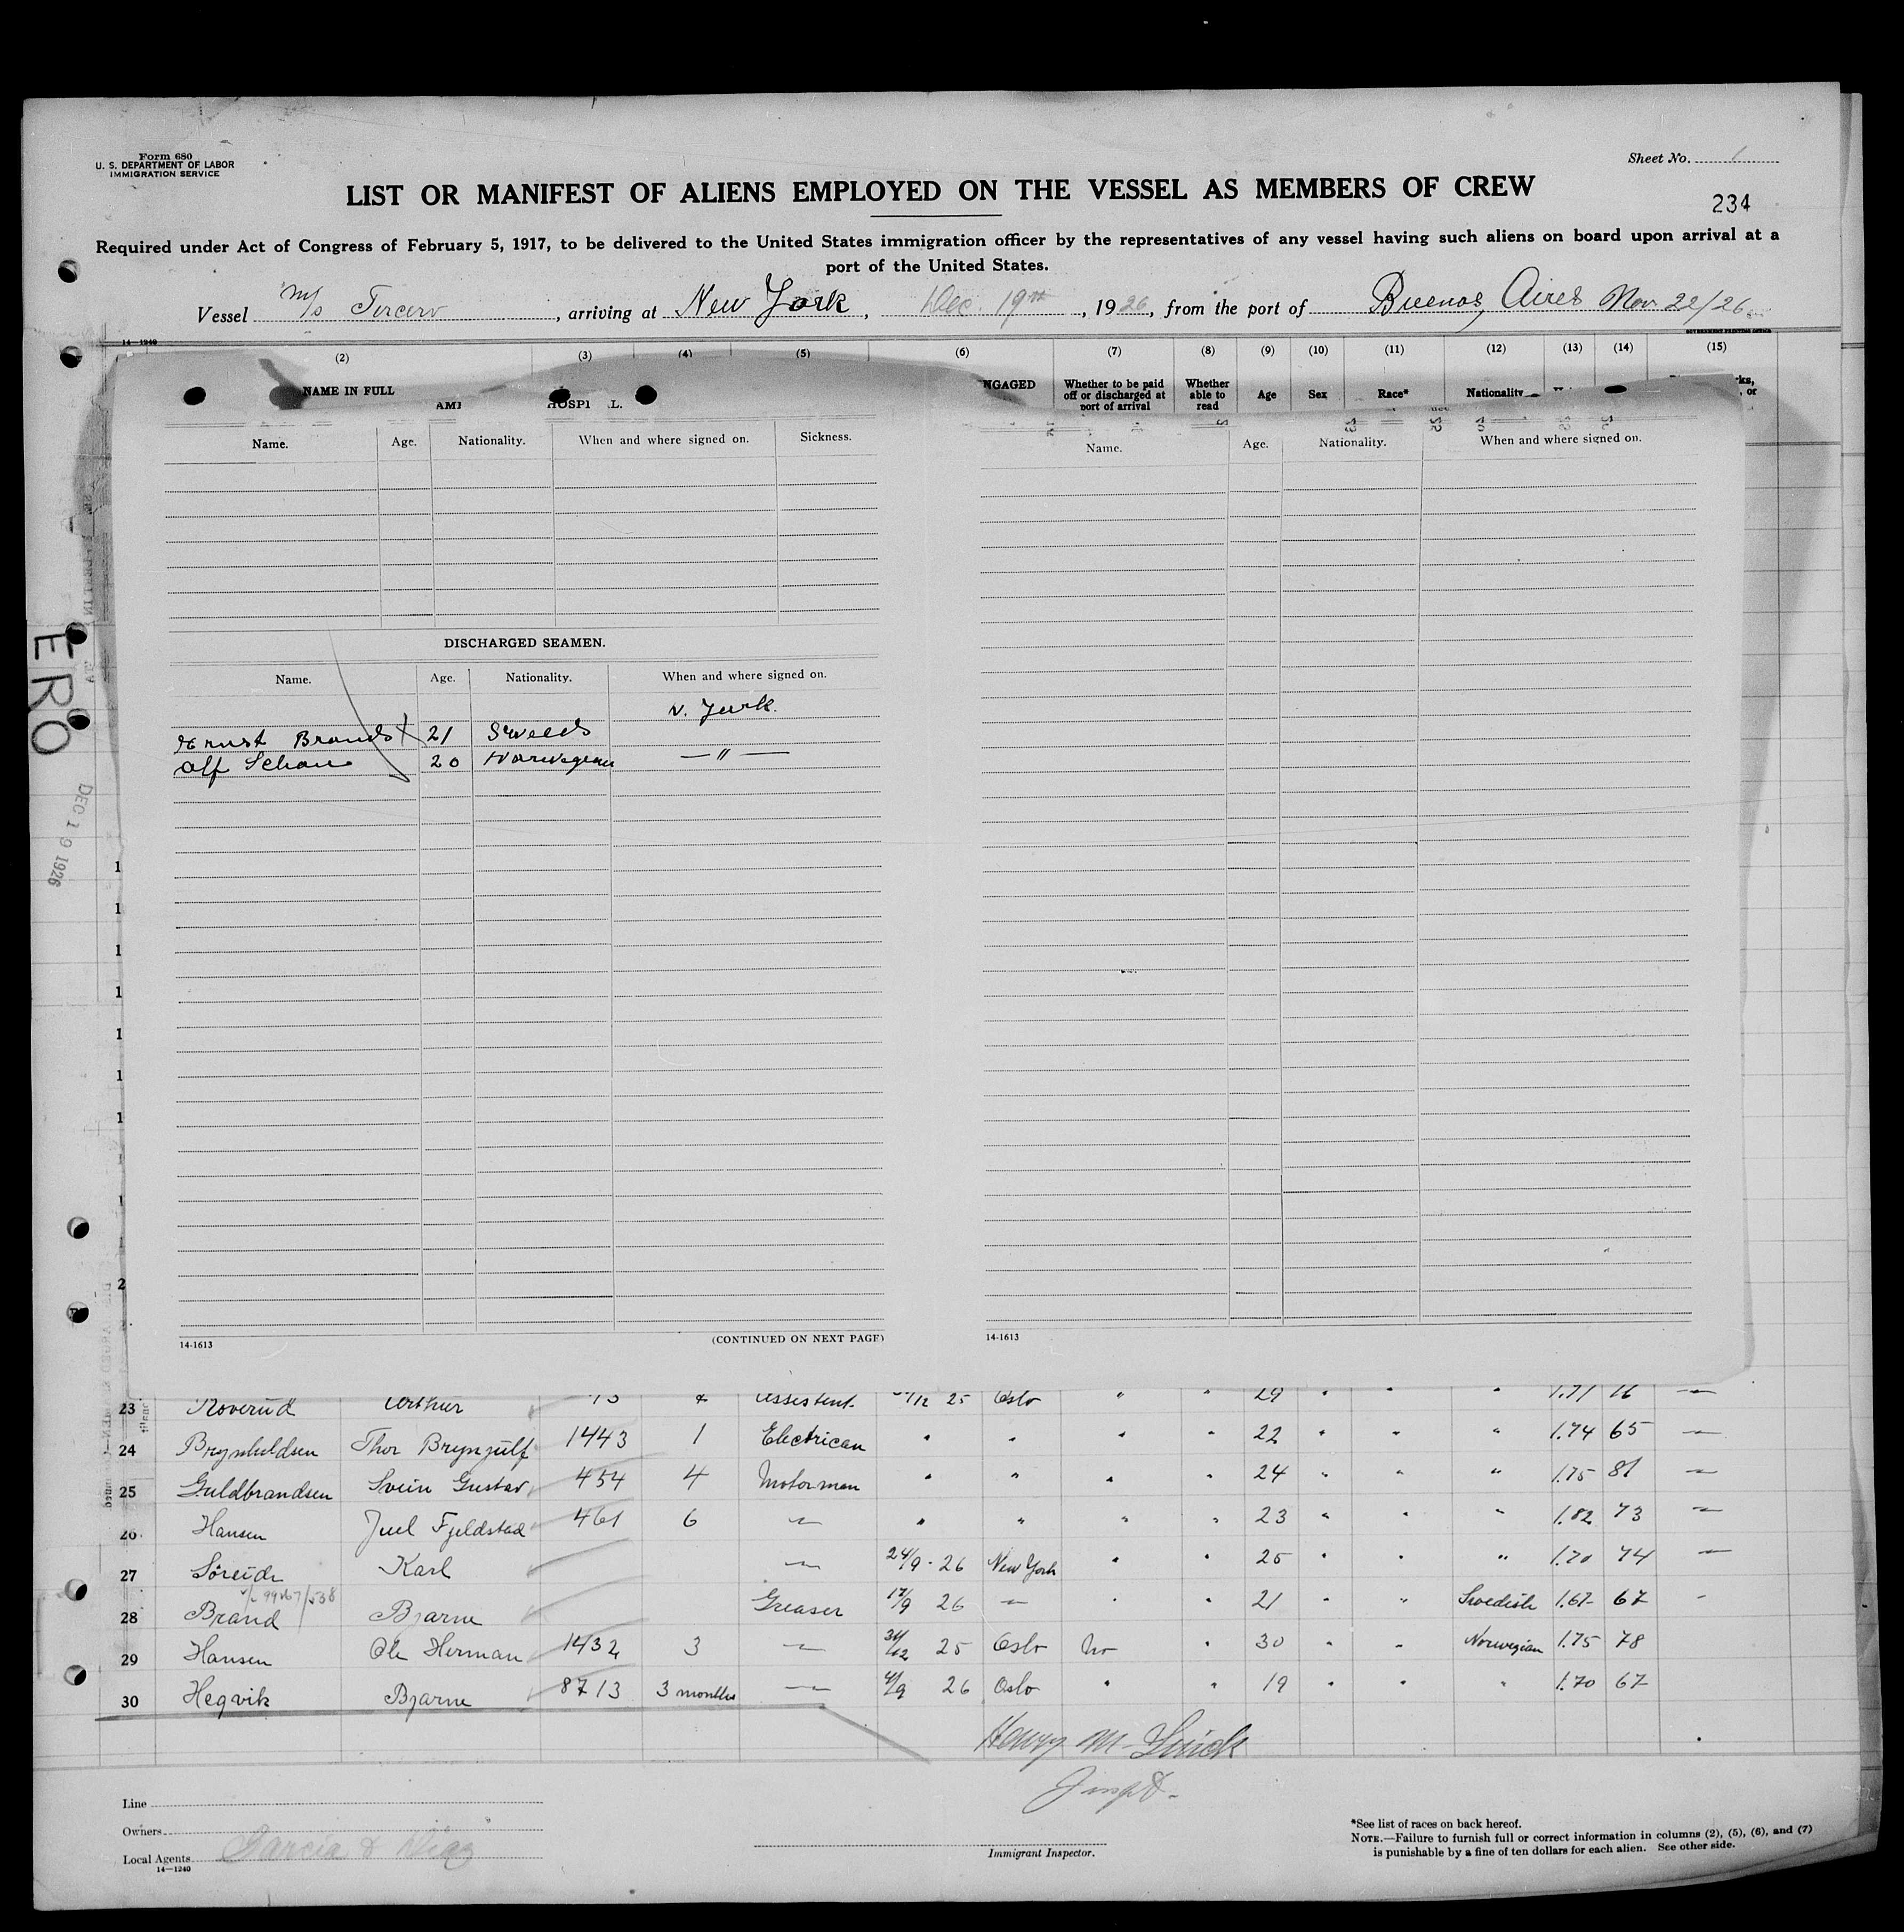 Form 680
U. S. DEPARTMENT OF LABOR
IMMIGRATION SERVICE
Sheet No. 1
LIST OR MANIFEST OF ALIENS EMPLOYED ON THE VESSEL AS MEMBERS OF CREW
234
Required under Act of Congress of February 5, 1917, to be delivered to the United States immigration officer by the representatives of any vessel having such aliens on board upon arrival at a
port of the United States.
Vessel M/s Tercero, arriving at New York, Dec. 19th, 1926, from the port of Buenos Aires Nov 22/26
14-1240 GOVERNMENT PRINTING OFFICE
(2) (3) (4) (5) (6) (7) (8) (9) (10) (11) (12) (13) (14) (15)
NAME IN FULL
NGAGED
Whether to be paid off or discharged at port of arrival
Whether able to read
Age Sex Race* Nationality
ks,
or
Name. Age. Nationality. When and where signed on. Sickness.
Name. Age. Nationality. When and where signed on.
DISCHARGED SEAMEN.
Name. Age. Nationality. When and where signed on.
N. York.
Ernst Brands 21 Sweeds
Alf Schau 20 Norwegian — " —
ERO
DEC 19 1926
14-1613 (CONTINUED ON NEXT PAGE)
14-1613
23 Roverud Arthur 4 Assistent 25 Oslo " " 29 " " " 1.71
24 Brynhildsen Thor Brynjulf 1443 1 Electrican " " " " 22 " " " 1.74 65 —
25 Guldbrandsen Svein Gustav 454 4 Motorman " " " " 24 " " " 1.75 81 —
26 Hansen Juel Fjeldstad 461 6 — " " " " 23 " " " 1.82 73 —
27 Söreide Karl — 24/9-26 New York " " 25 " " " 1.70 74 —
28 Brand Bjarne Greaser 17/9 26 — " " 21 " " Swedish 1.67 67 -
29 Hansen Ole Herman 1432 3 — 31/12 25 Oslo No " 30 " " Norwegian 1.75 78
30 Hegvik Bjarne 8713 3 months — 4/9 26 Oslo " " 19 " " " 1.70 67
Line
Owners
Local Agents Garcia & Diaz
14-1240
Immigrant Inspector.
*See list of races on back hereof.
NOTE.—Failure to furnish full or correct information in columns (2), (5), (6), and (7)
is punishable by a fine of ten dollars for each alien. See other side.